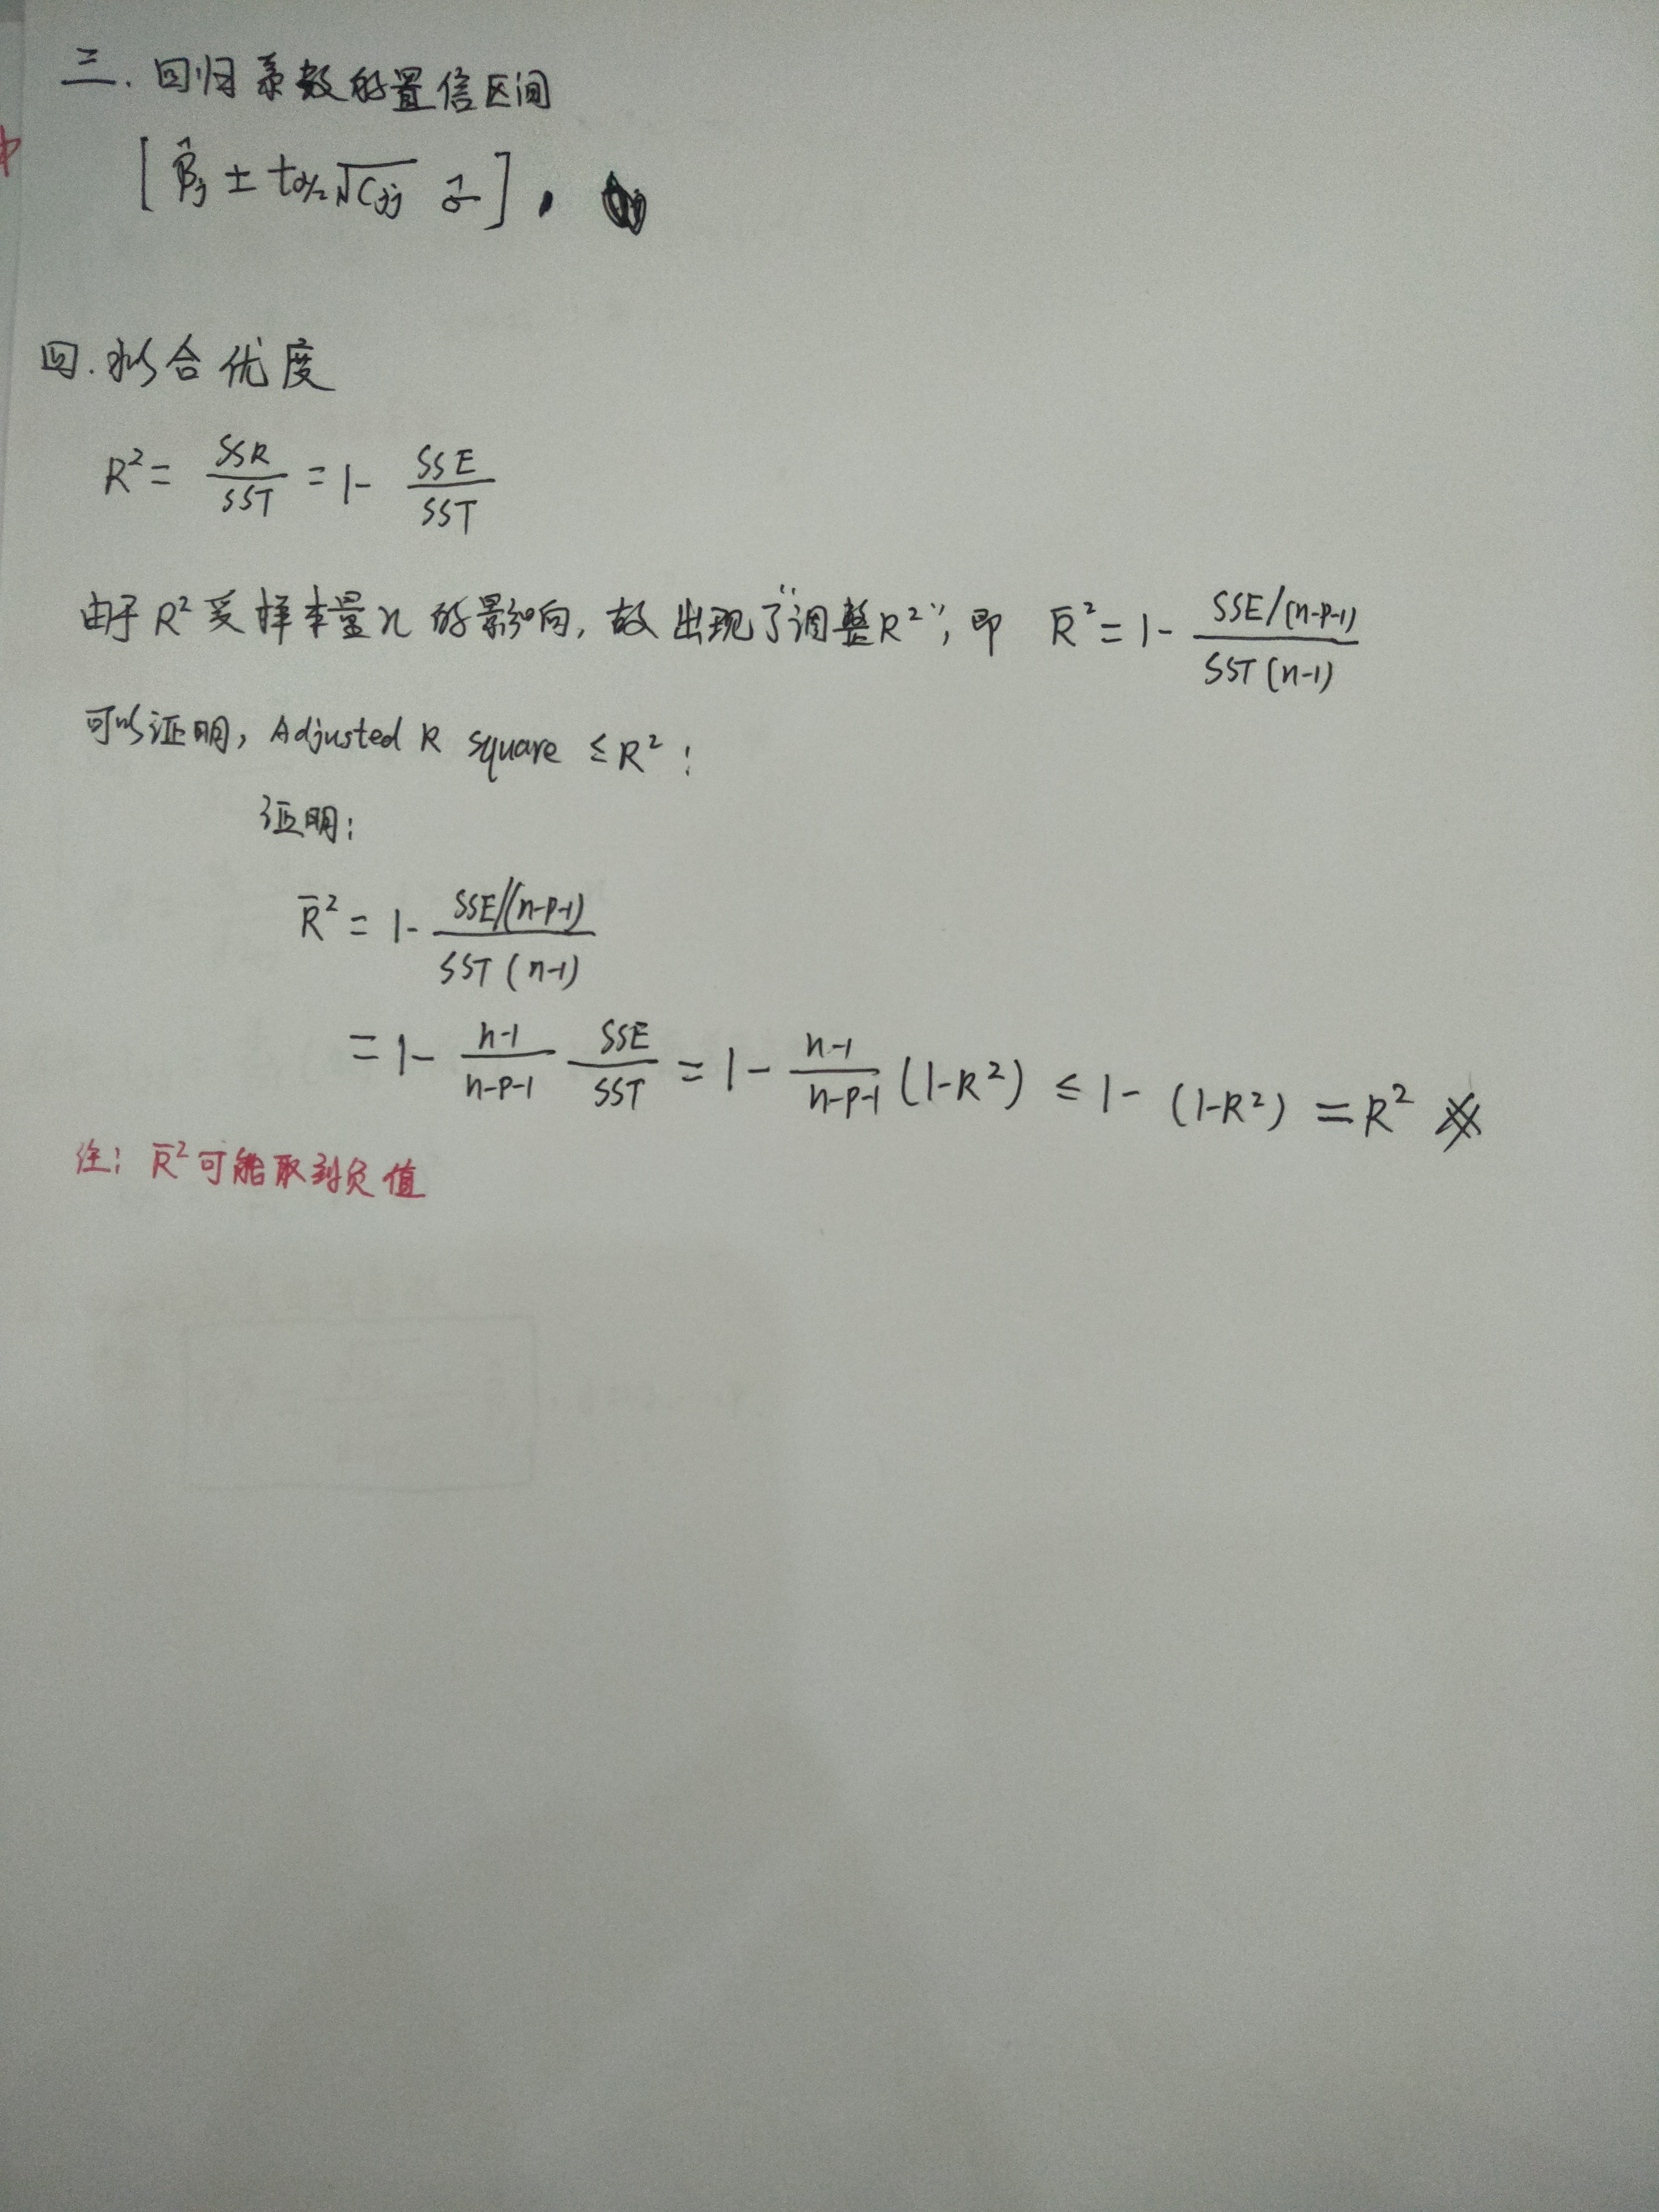 三. 回归系数的置信区间
[β̂j ± tα/2 √Cjj σ̂],
四. 拟合优度
R² = SSR/SST = 1 - SSE/SST
由于R²受样本量n的影响, 故出现了“调整R²”, 即 R̄² = 1 - SSE/(n-p-1) / SST(n-1)
可以证明, Adjusted R square ≤ R²:
证明:
R̄² = 1 - SSE/(n-p-1) / SST(n-1)
= 1 - n-1/n-p-1 SSE/SST = 1 - n-1/n-p-1 (1-R²) ≤ 1 - (1-R²) = R²
注: R̄²可能取到负值